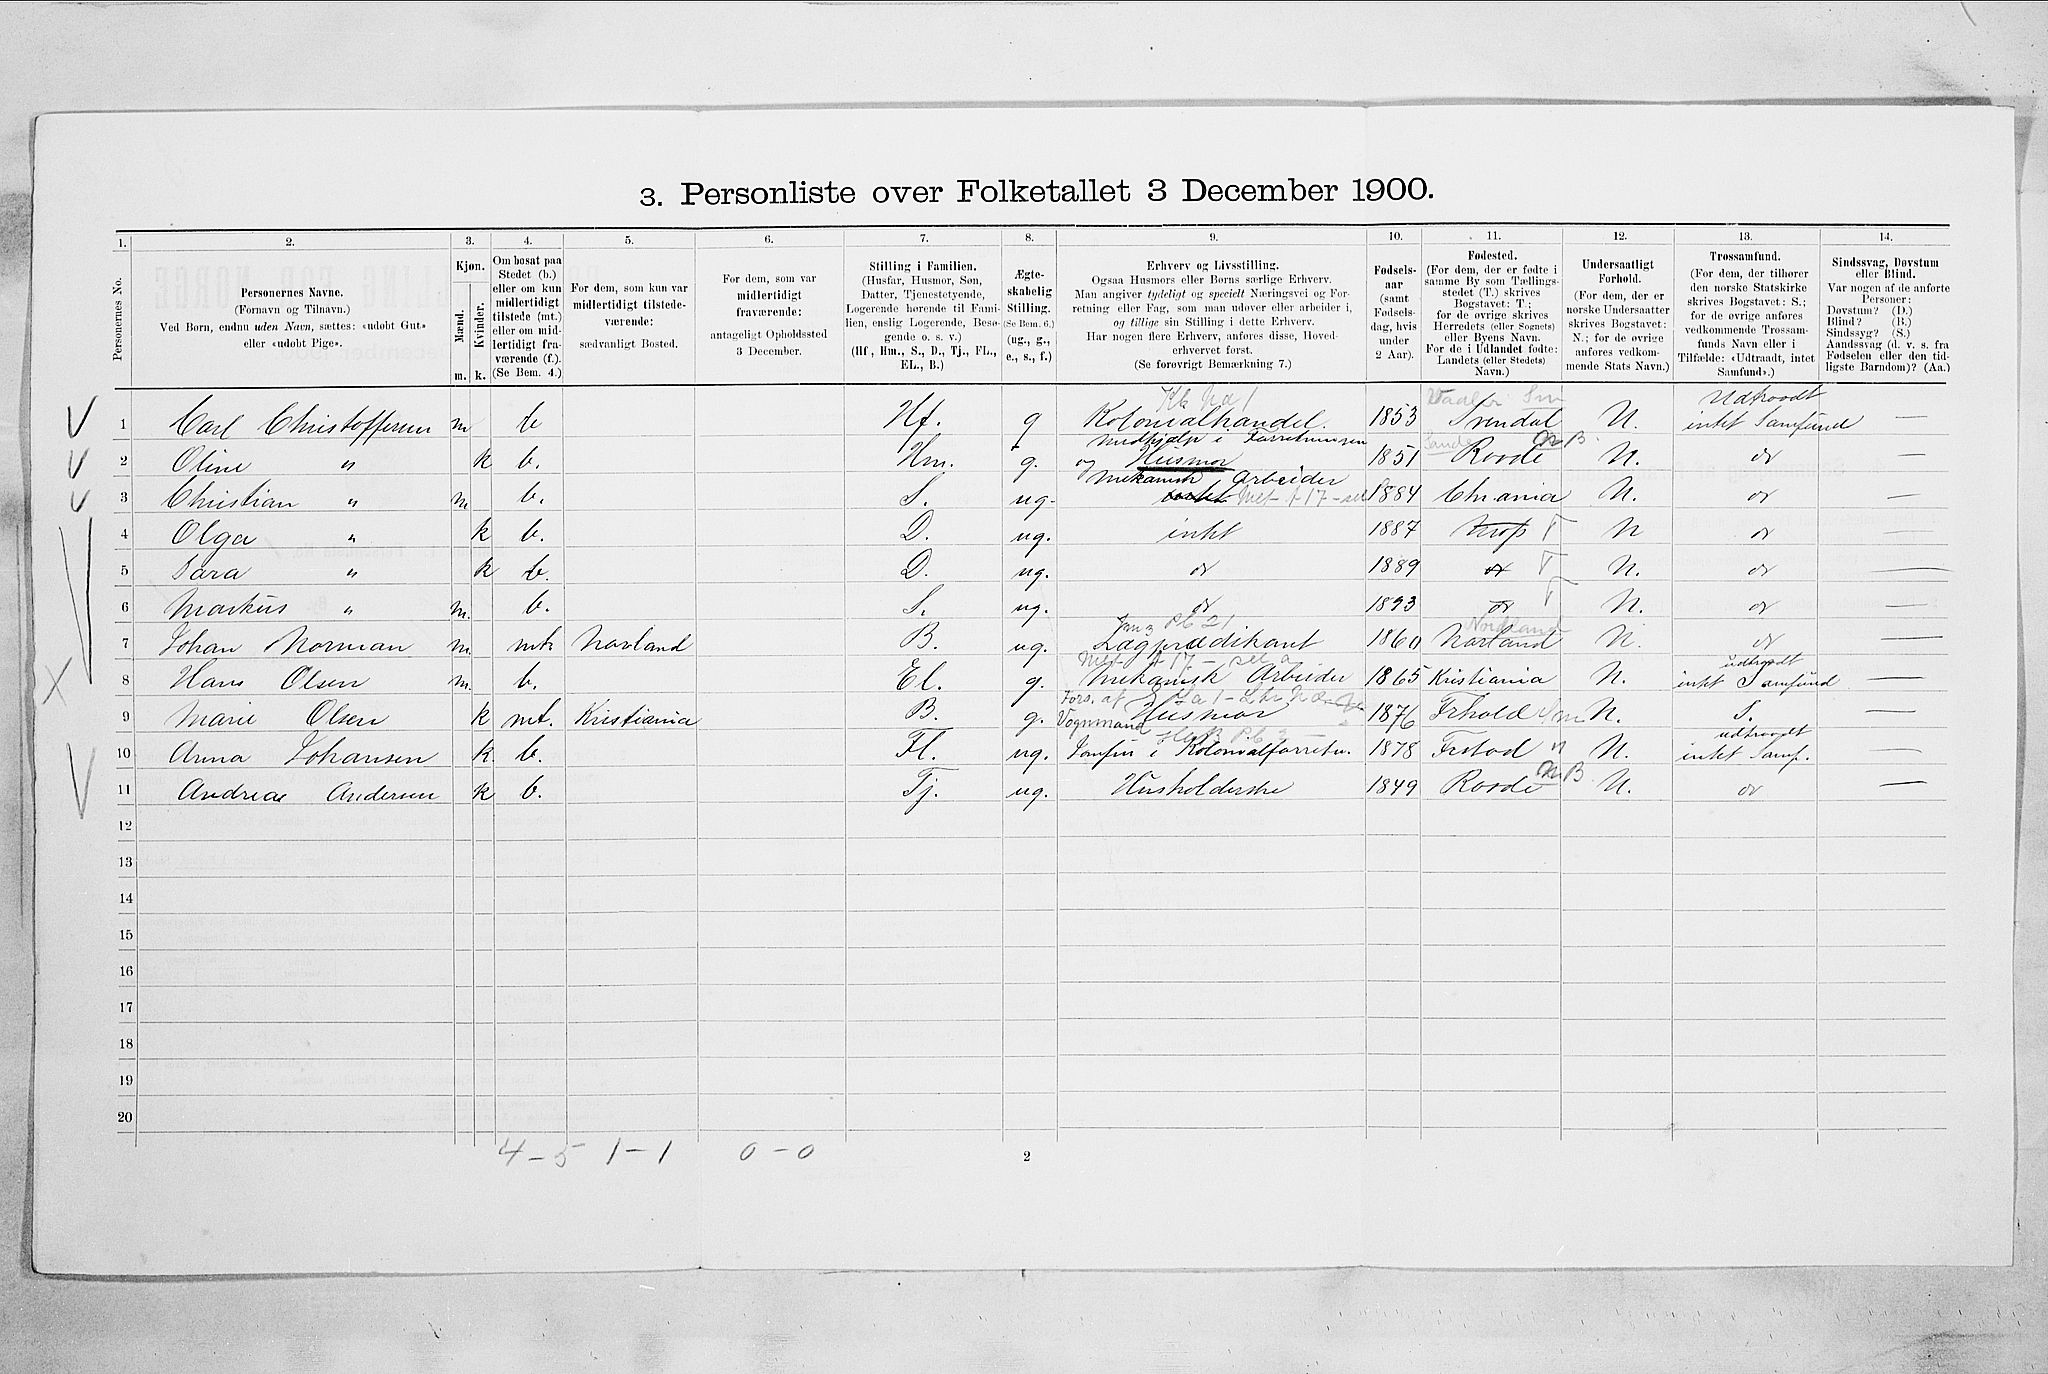 3. Personliste over Folketallet 3 December 1900.
1. 2. 3. 4. 5. 6. 7. 8. 9. 10. 11. 12. 13. 14.
Personernes No.
Personernes Navne.
(Fornavn og Tilnavn.)
Ved Børn, endnu uden Navn, sættes: «udøbt Gut»
eller «udøbt Pige».
Kjøn.
Mænd. Kvinder.
m. k.
Om bosat paa
Stedet (b.)
eller om kun
midlertidigt
tilstede (mt.)
eller om mid-
lertidigt fra-
værende (f.).
(Se Bem. 4.)
For dem, som kun var
midlertidigt tilstede-
værende:
sædvanligt Bosted.
For dem, som var
midlertidigt
fraværende:
antageligt Opholdssted
3 December.
Stilling i Familien.
(Husfar, Husmor, Søn,
Datter, Tjenestetyende,
Logerende hørende til Fami-
lien, enslig Logerende, Besø-
gende o. s. v.)
(Hf, Hm., S., D., Tj., FL.,
EL., B.)
Ægte-
skabelig
Stilling.
(Se Bem. 6.)
(ug., g.,
e., s., f.)
Erhverv og Livsstilling.
Ogsaa Husmors eller Børns særlige Erhverv.
Man angiver tydeligt og specielt Næringsvei og For-
retning eller Fag, som man udøver eller arbeider i,
og tillige sin Stilling i dette Erhverv.
Har nogen flere Erhverv, anføres disse, Hoved-
erhvervet først.
(Se forøvrigt Bemærkning 7.)
Fødsels-
aar
(samt
Fødsels-
dag, hvis
under
2 Aar).
Fødested.
(For dem, der er fødte i
samme By som Tællings-
stedet (T.) skrives
Bogstavet: T.;
for de øvrige skrives
Herredets (eller Sognets)
eller Byens Navn.
For de i Udlandet fødte:
Landets (eller Stedets)
Navn.)
Undersaatligt
Forhold.
(For dem, der er
norske Undersaatter
skrives Bogstavet:
N.; for de øvrige
anføres vedkom-
mende Stats Navn.)
Trossamfund.
(For dem, der tilhører
den norske Statskirke
skrives Bogstavet: S.;
for de øvrige anføres
vedkommende Trossam-
funds Navn eller i
Tilfælde: «Udtraadt, intet
Samfund».)
Sindssvag, Døvstum
eller Blind.
Var nogen af de anførte
Personer:
Døvstum? (D.)
Blind? (B.)
Sindssyg? (S.)
Aandssvag (d. v. s. fra
Fødselen eller den tid-
ligste Barndom)? (Aa.)
Udtraadt
1 Carl Christoffersen m b Hf. g Kolonialhandel. 1853 Svendal N. intet Samfund —
Medhjælp i Forretningen
2 Oline " k b. Hm. g. og Husmor 1851 Rovde N. do —
Mekanisk Arbeider
3 Christian " m. b. S. ug. intet 1884 Chr.ania N. do —
4 Olga " k b. D. ug. intet 1887 T N do —
5 Sara " k b. D. ug. do 1889 do T N. do —
6 Markus " m. b. S. ug. do 1893 do T N. do —
Nordland
7 Johan Norman m. mt. Navland B. ug. Lægprædikant 1860 Navland N. do —
udtraadt
8 Hans Olsen m. b. El. g. Mekanisk Arbeider 1865 Kristiania N. intet Samfund —
Fors. af
9 Marie Olsen k mt. Kristiania B. g. Vognmand Husmor 1876 Frhold N. S. —
udtraadt
10 Anna Johansen k. b. Fl. ug. Jomfru i Kolonialforretn. 1878 Frstad N. intet Samf. —
11 Andrea Andersen k b. Tj. ug. Husholderske 1849 Rovde N. do —
12
13
14
15
16
17
18
19
20
4 – 5 1 – 1 0 – 0
2